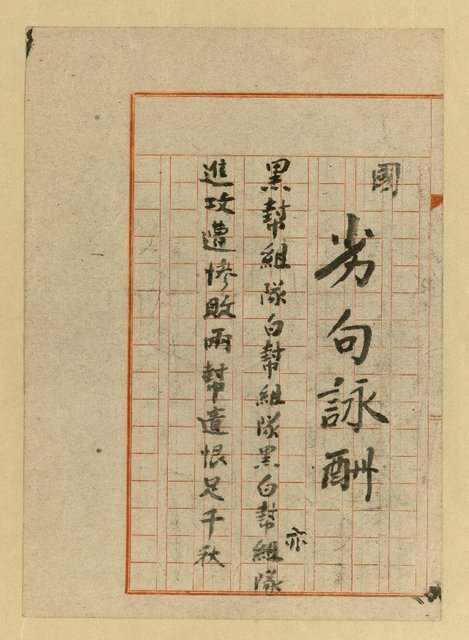 國
劣句詠酬
黑幫組隊白幫組隊黑白幫組隊
亦
進攻遭慘敗兩幫遺恨足千秋